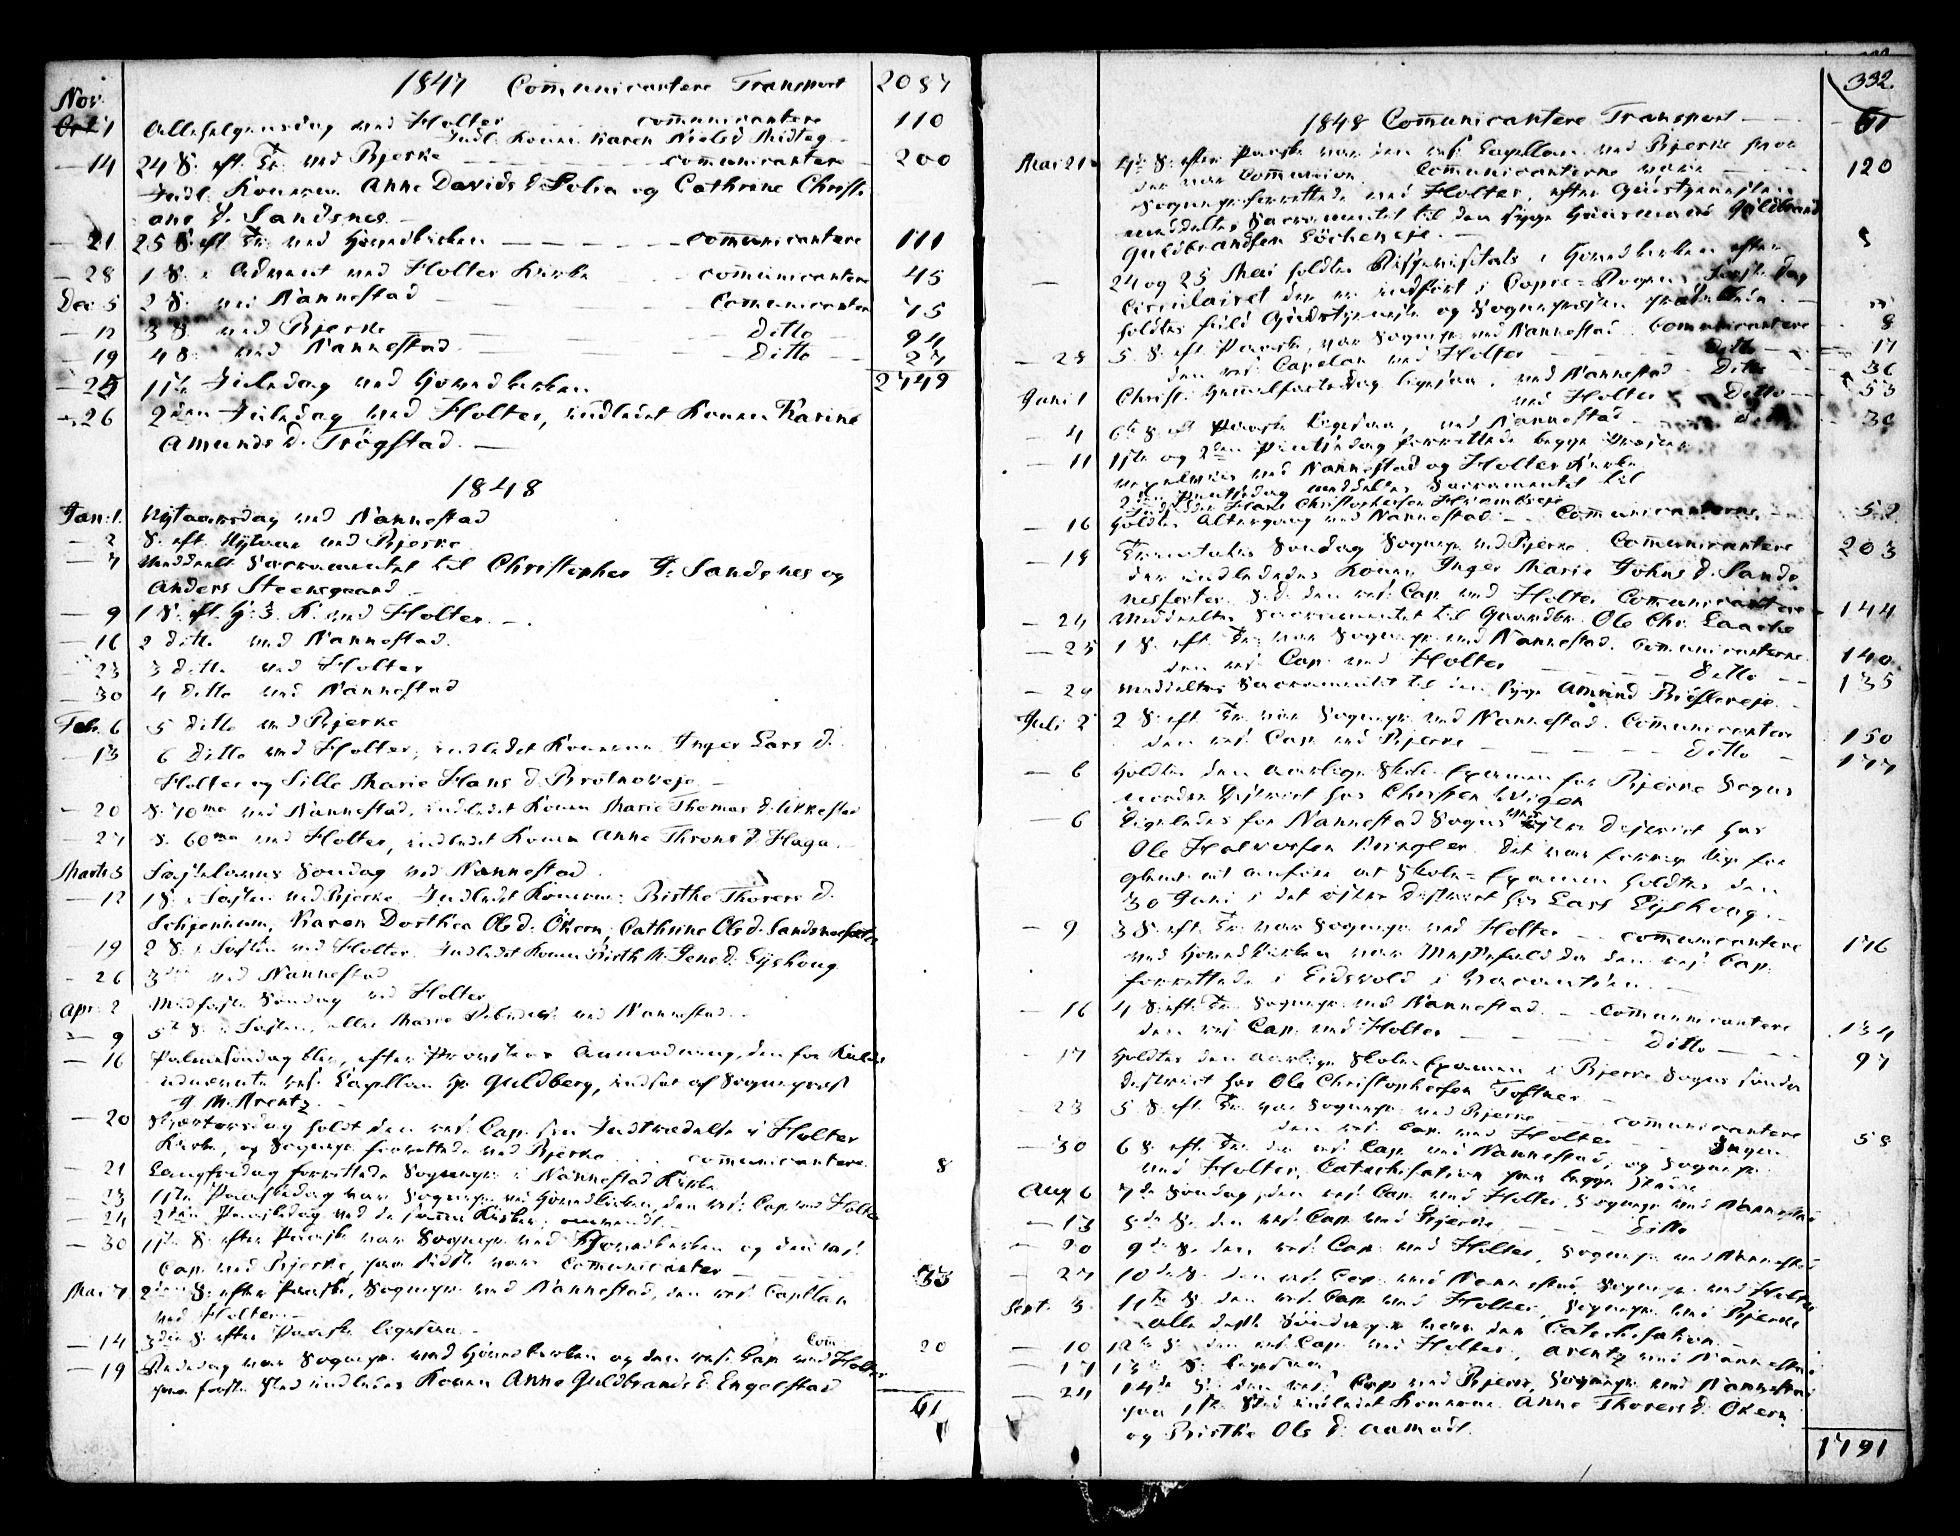 1847 Com̄unicantere Transport 2087
Nov. 1 Allehelgensdag ved Holter communicantere 110
Indl. Konen Karen Nielsd. Midteg
— 14 24 S. eft. Tr. ved Bjerke communicantere 200
Indl. Konerne Anne Davids d. Solia og Cathrine Christi
ane d. Sandsnes.
— 21 25 S. eft. Tr. ved Hovedkirken communicantere 111
— 28 1 S. i Advent ved Holter Kirke communicantere 45
Dec. 5 2 S. ved Nannestad Communicanter 75
— 12 3 S. ved Bjerke Ditto 94
— 19 4 S. ved Nannestad Ditto 27
— 25 1ste Juledag ved Hovedkirken 2749
— 26 2den Juledag ved Holter, indledet Konen Karine
Amunds d. Trøgstad.
1848
Jan. 1. Nytaarsdag ved Nannestad
— 2 S. eft. Nytaar ved Bjerke
— 7 Meddeelt Sacramentet til Christopher J. Sandsnes og
Anders Steensgaard
— 9 1 S. eft. H. 3 K. ved Holter.
— 16 2 ditto ved Nannestad.
— 23 3 ditto ved Holter
— 30 4 ditto ved Nannestad
Feb. 6 5 ditto ved Bjerke
— 13 6 Ditto ved Holter, indledet Konerne Inger Lars d.
Holter og Sille Marie Hans d. Brotnoreje
— 20 S. 70ma ved Nannestad, indledet Konen Marie Thomas d. Ukkestad
— 27 S. 60ma ved Holter, indledet Konen Anne Throns d. Haga.
Marts 5 Fastelavns Søndag ved Nannestad.
— 12 1 S. i Fasten ved Bjerke. Indledet Konerne: Birthe Thorers d.
Karen Dorthea Ols d. Økern, Cathrine Ols d.
19 2 S. i Fasten ved Holter. Indledet Konen Birth M. Jens d. Lyshoug
— 26 3die ved Nannestad
Apr. 2 Midfaste Søndag ved Holter
— 9 5te S. i Fasten, eller Mariæ ved Nannestad.
— 16 Palmesøndag blev, efter Provstens Anmodning, den for
res. Capellan Hr. Guldberg, indsat af Sognepræst
M. Arentz.
— 20 Skjærtorsdag holdt den res. Cap. sin Indtrædelse i Holter
Kirke, og Sognepr. forrettede ved Bjerke communicantere. 8
— 21 Langfredag forrettede Sognepr. i Nannestad Kirke
— 23 1ste Paaskedag var Sognepr. ved Hovedkirken, den res. Cap. ved Holter
— 24 2den Paaskedag ved de samme Kirker, omvendt.
— 30 1ste S. efter Paaske var Sognepr. ved Hovedkirken og den res.
Cap. ved Bjerke, paa sidste var Comunicanter 33
Mai 7 2den S. efter Paaske, Sognepr. ved Nannestad, den res. Capellan
ved Holter.
— 14 3die S. efter Paaske ligesaa. Com. 20
— 19 Bededag var Sognepr. ved Hovedkirken og den res. Cap. ved Holter
paa første Sted indledes Konen Anne Guldbrands d. Engelstad
61
332
1848 Com̄unicantere Transport 61
Mai 21 4de S. efter Paaske var den res. Capellan ved Bjerke hvor
der var Communion. Communicanterne vare 120
Sognepr. forrettede ved Holter, efter Gudstjenesten
meddeltes Sacramentet til den syge Huusmand Guldbrand
Guldbrandsen
24 og 25 Mai holdtes Bispevisitats i Hovedkirken efter
Circulairet der er indført i Copie-Bogen. Første Dag
holdtes fuld Gudstjeneste og Sognepræsten prædikede.
— 28 5. S. eft. Paaske, var Sognepr. ved Nannestad. Communicantere 8
den res. Capelan ved Holter ditto 17
Juni 1 Christi Himmelfartsdag ligesaa, ved Nannestad Ditto 36
ved Holter Ditto 53
— 4 6te S. eft. Paaske ligesaa, ved Nannestad 30
— 11 1ste og 2den Pintsedag forrettede begge Præster
vexelviis ved Nannestad og Holter Kirke
2den Pintsedag meddeltes Sacramentet til
Hans Christophersen
— 16 Holdtes Altergang ved Nannestad Communicanterne 52
— 18 Trinitatis Søndag Sognepr. ved Bjerke. Communicantere 203
der indledtes Konen Inger Marie Johns d. Sands
nesseter. S. D. den res. Cap. ved Holter Comunicantere 144
— 24 Meddeeltes Sacramentet til Gaardbr. Ole Chr. Laache
— 25 1 S. eft. Tr. var Sognepr. ved Nannestad. Communicanterne 140
den res. Cap. ved Holter Ditto 135
Meddeeltes Sacramentet til den syge Amund
Juli 2 2 S. eft. Tr. var Sognepr. ved Nannestad. Communicantere 150
den res. Cap. ved Bjerke Ditto 177
— 6 Holdtes den aarlige Skole-Examen for Bjerke Sogns
nordre District hos Christen
— 6 Ligeledes for Nannestad Sogns District hos
Ole Halvorsen Ringler. Det var forrige Uge for
glemt at anføre at Skole-Examen holdtes den
30 Juni i det østre District hos Lars Lyshoug.
— 9 3 S. eft. Tr. var Sognepr. ved Holter communicantere 176
ved Hovedkirken var Messefald da den res. Cap.
forrettede i Eidsvold i Vacantsen.
— 16 4 S. eft. Tr. Sognepr. ved Nannestad. Communicantere 134
den res. Cap. ved Holter Ditto 97
— 17 Holdtes den aarlige Skole Examen i Bjerke Sogns søndre
District hos Ole Christophersen Toftner
— 23 5 S. eft. Tr. var Sognepr. ved Bjerke communicantere 58
den res. Cap. ved Holter Ingen
— 30 6 S. eft. Tr. den res. Cap. ved Nannestad, og Sognepr.
ved Holter. Catechisation paa begge Steder
Aug. 6 7de Søndag, den res. Cap. ved Holter. Sognepr. ved Nannestad
— 13 8de S. den res. Cap. ved Bjerke Ditto
— 20 9de S. den res. Cap. ved Holter, Sognepr. ved Nannestad
— 27 10de S. den res. Cap. ved Nannestad, Sognepr. ved Holter
Sept. 3 11te S. den res. Cap. ved Holter, Sognepr. ved Bjerke
alle disse Søndage var der Catechisation.
— 10 12te S. den res. Cap. ved Holter, Arentz ved Nannestad
— 17 13de S. ligesaa
— 24 14de S. den res. Cap. ved Bjerke, Sognepr. ved Nannestad
paa 1ste Sted indledet Konerne Anne Thorers d. Økern
og Birthe Ols d. Aamodt.
1791